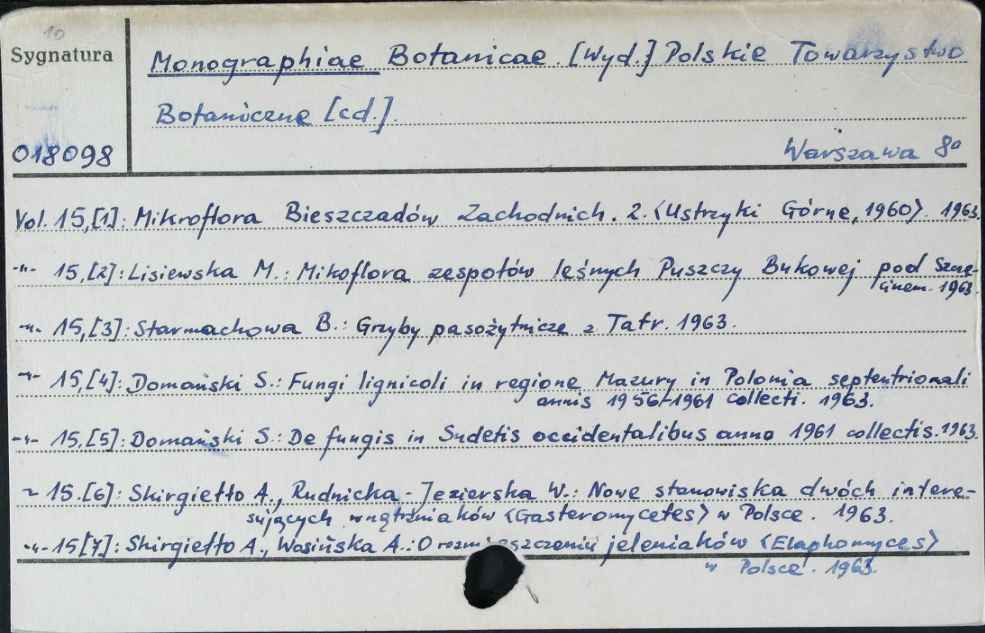 10
Sygnatura
Monographiae Botanicae. [Wyd.] Polskie Towarzystwo
Botaniczne [cd.].
018098
Warszawa 8°
Vol. 15,[1]: Mikroflora Bieszczadów Zachodnich. 2. <Ustrzyki Górne, 1960>. 1963.
-"- 15,[2]: Lisiewska M.: Mikoflora zespołów leśnych Puszczy Bukowej pod Szcze-
cinem. 1963.
-"- 15,[3]: Starmachowa B.: Grzyby pasożytnicze z Tatr. 1963.
-"- 15,[4]: Domański S.: Fungi lignicoli in regione Mazury in Polonia septentrionali
annis 1956-1961 collecti. 1963.
-"- 15,[5]: Domański S.: De fungis in Sudetis occidentalibus anno 1961 collectis. 1963.
-"- 15.[6]: Skirgiełło A., Rudnicka-Jezierska W.: Nowe stanowiska dwóch intere-
sujących wnętrzniaków <Gasteromycetes> w Polsce. 1963.
-"- 15[7]: Skirgiełło A., Wasińska A.: O rozmieszczeniu jeleniaków <Elaphomyces>
w Polsce. 1963.